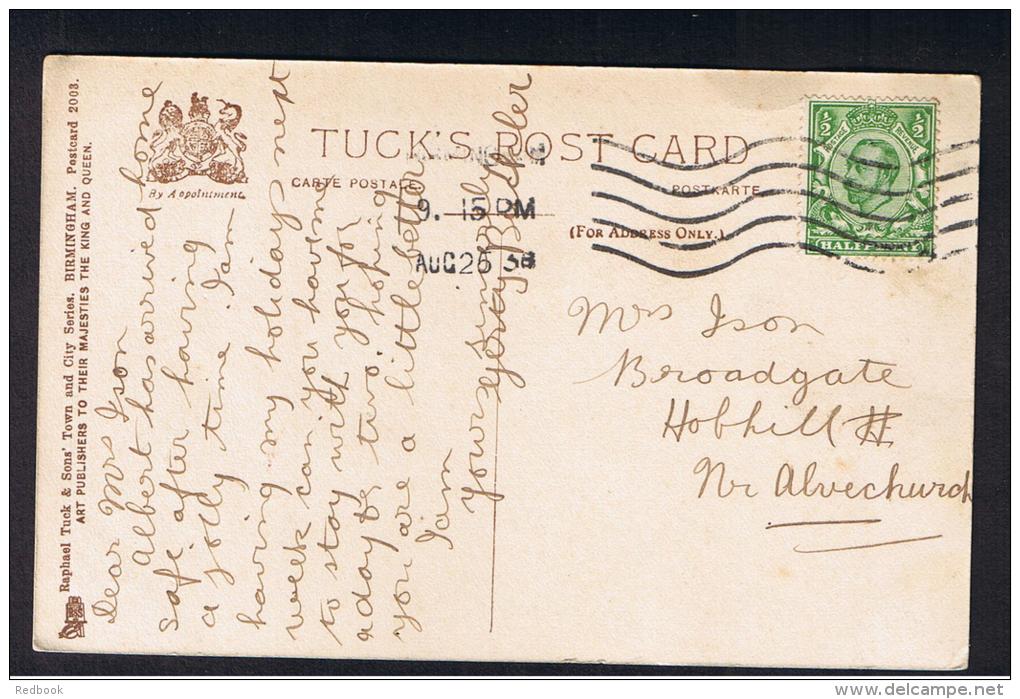 Raphael Tuck & Sons' Town and City Series. BIRMINGHAM. Postcard 2003.
ART PUBLISHERS TO THEIR MAJESTIES THE KING AND QUEEN.
By Appointment.
TUCK'S POST CARD
CARTE POSTALE
POSTKARTE
(FOR ADDRESS ONLY.)
9. 15 PM
AUG 26
½ ½
POSTAGE REVENUE
HALFPENNY
Dear Mrs Ison
Albert has arrived home
safe after having
a jolly time I am
having my holidays next
week can you have me
to stay with you for
a day or two hoping
you are a little better
I am
yours sincerely
Butcher
Mrs Ison
Broadgate
Hobhill
Nr Alvechurch
Redbook
www.delcampe.net